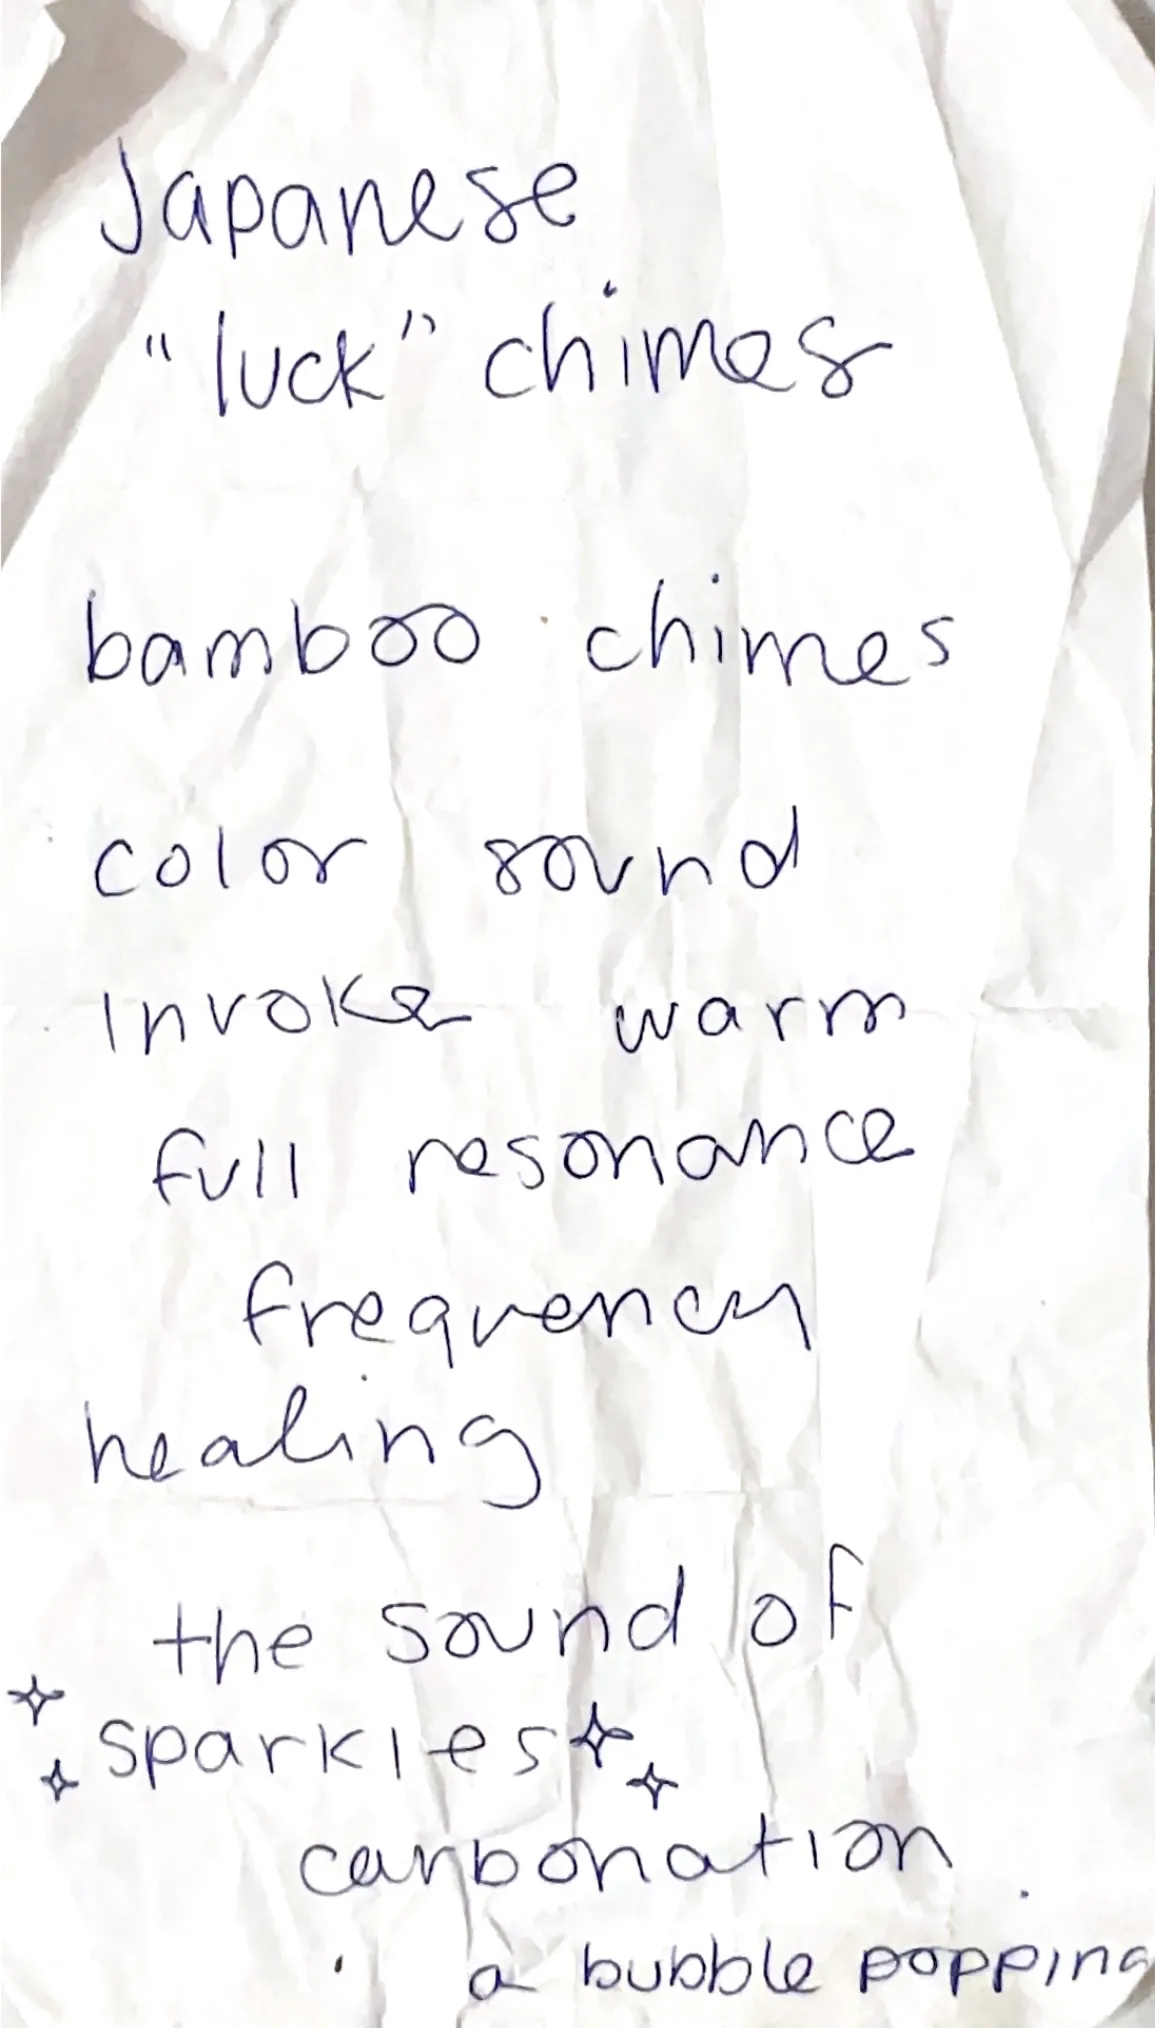 Japanese
"luck" chimes
bamboo chimes
color sound
invoke warm
full resonance
frequency
healing
the sound of
sparkles
carbonation
a bubble popping